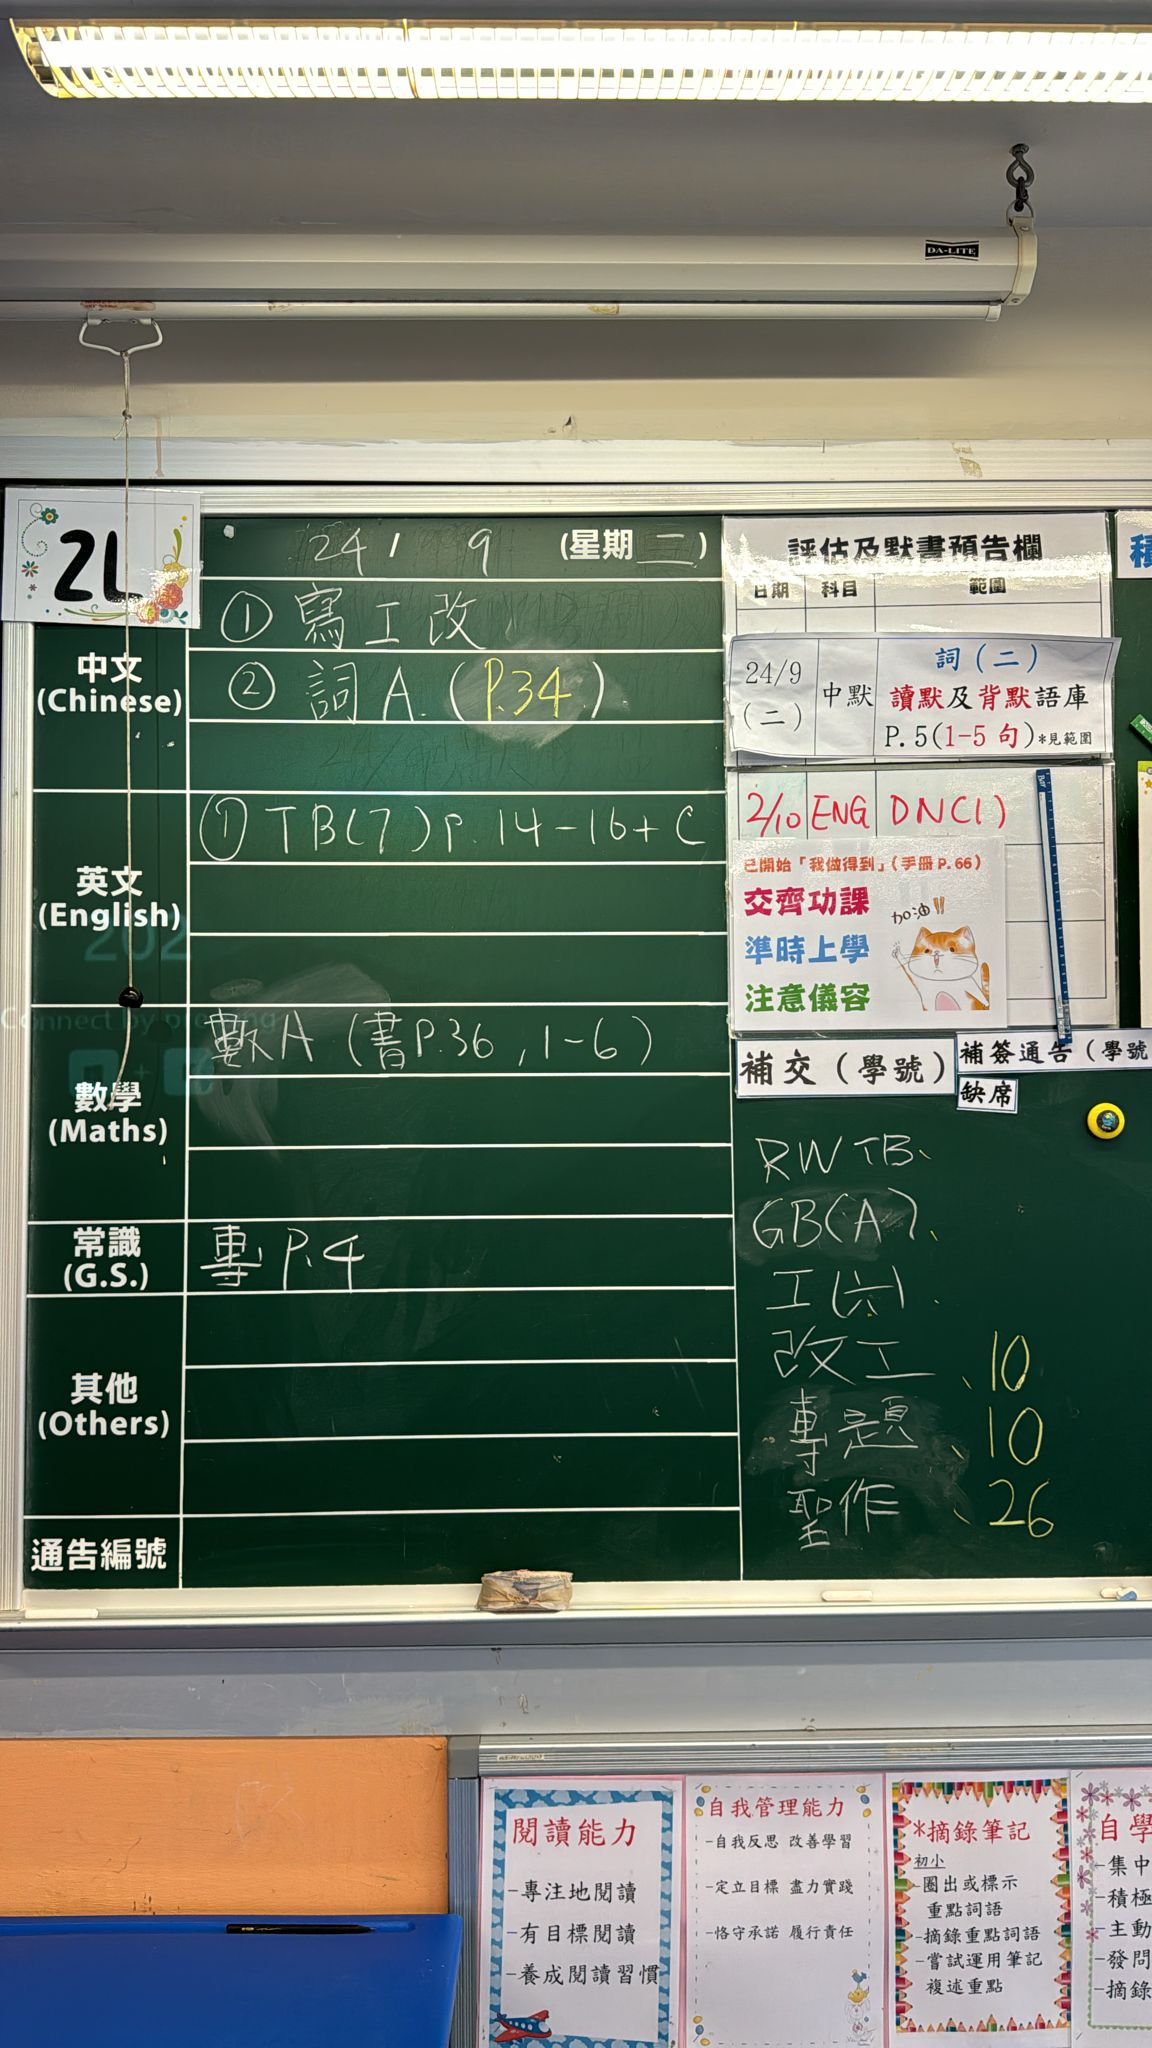 DA-LITE
2L
24 / 9 (星期 二)
中文
(Chinese)
① 寫工改
② 詞 A. (P.34)
英文
(English)
① TB(7) P. 14-16 + C
數學
(Maths)
數A (書P.36, 1-6)
常識
(G.S.)
專 P.4
其他
(Others)
通告編號
評估及默書預告欄
日期 科目 範圍
24/9
(二)
中默
詞(二)
讀默及背默語庫
P.5(1-5 句)*見範圍
2/10 ENG DN(1)
已開始「我做得到」(手冊 P.66)
交齊功課
準時上學
注意儀容
加油!!
補交(學號)
補簽通告(學號
缺席
RW TB、
GB(A)、
工(六)、
改工、10
專題、10
聖作、26
積
閱讀能力
-專注地閱讀
-有目標閱讀
-養成閱讀習慣
自我管理能力
-自我反思 改善學習
-定立目標 盡力實踐
-恪守承諾 履行責任
*摘錄筆記
初小
-圈出或標示
重點詞語
-摘錄重點詞語
-嘗試運用筆記
複述重點
自學
-集中
-積極
-主動
-發問
-摘錄